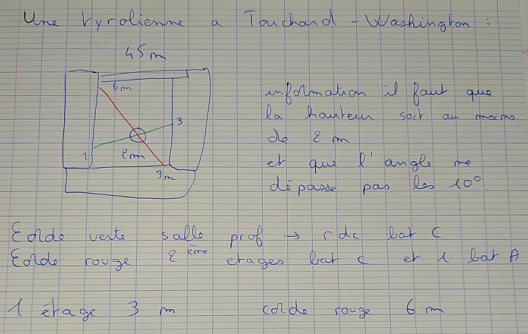 Une tyrolienne a Touchard - Washington :
45 m
6 m
information il faut que
la hauteur soit au moins
3
de 2 m
1
2 m
et que l'angle ne
3 m
dépasse pas les 10°
Corde verte salle prof → rdc bat C
Corde rouge 2ème etages bat C et 1 bat A
1 étage 3 m corde rouge 6 m